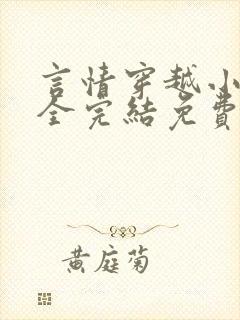 言情穿越小
全完結免費
黃庭菊